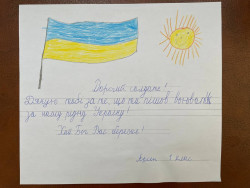 Дорогий солдате!
Дякую тобі за те, що ти пішов воювати
за нашу рідну Україну!
Хай Бог Вас береже!
3 клас